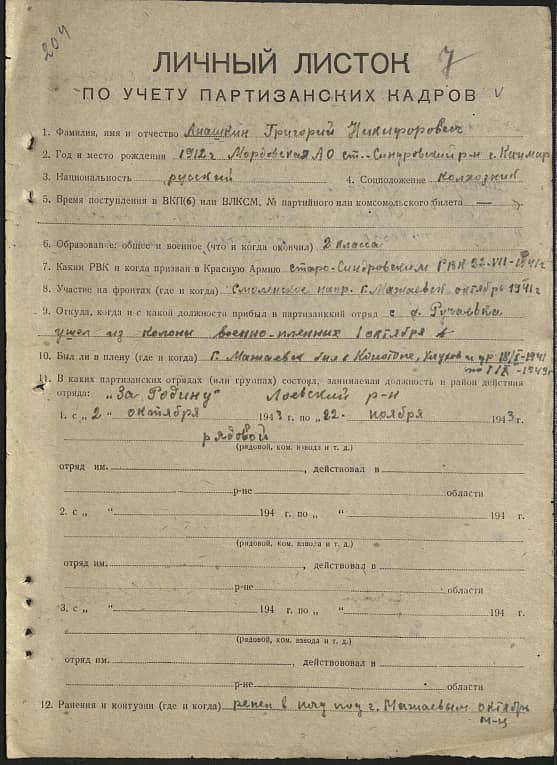 204
ЛИЧНЫЙ ЛИСТОК 7
ПО УЧЕТУ ПАРТИЗАНСКИХ КАДРОВ V
1. Фамилия, имя и отчество Анашкин Григорий Никифорович
2. Год и место рождения 1912 г Мордовская АО ст.-Синдровский р-н с.
3. Национальность русский 4. Соцположение колхозник
5. Время поступления в ВКП(б) или ВЛКСМ, № партийного или комсомольского билета —
6. Образование: общее и военное (что и когда окончил) 2 класса
7. Каким РВК и когда призван в Красную Армию старо-Синдровским РВК 22-VII-1941 г
8. Участие на фронтах (где и когда) Смоленское напр. г. Мажаевск октябрь 1941 г
9. Откуда, когда и с какой должности прибыл в партизанкий отряд с д. Ручаевка
ушел из колоны военно-пленных 1 октября
10. Был ли в плену (где и когда) г. Мажаевск был в Конотопе, и др 18/X-1941
по 1/X-1943 г
11. В каких партизанских отрядах (или группах) состоял, занимаемая должность и район действия
отряда: „За Родину" Лоевский р-н
1. с „ 2 " октября 1943 г. по „ 22 " ноября 1943 г.
рядовой
(рядовой, ком. взвода и т. д.)
отряд им. , действовал в
р-не области
2. с „ " 194 г. по „ " 194 г.
(рядовой, ком. взвода и т. д.)
отряд им. , действовал в
р-не области
3. с „ " 194 г. по „ " 194 г.
(рядовой, ком. взвода и т. д.)
отряд им. , действововал в
р-не области
12. Ранения и контузии (где и когда) ранен в ногу под г. Мажаевым октябрь
м-ц